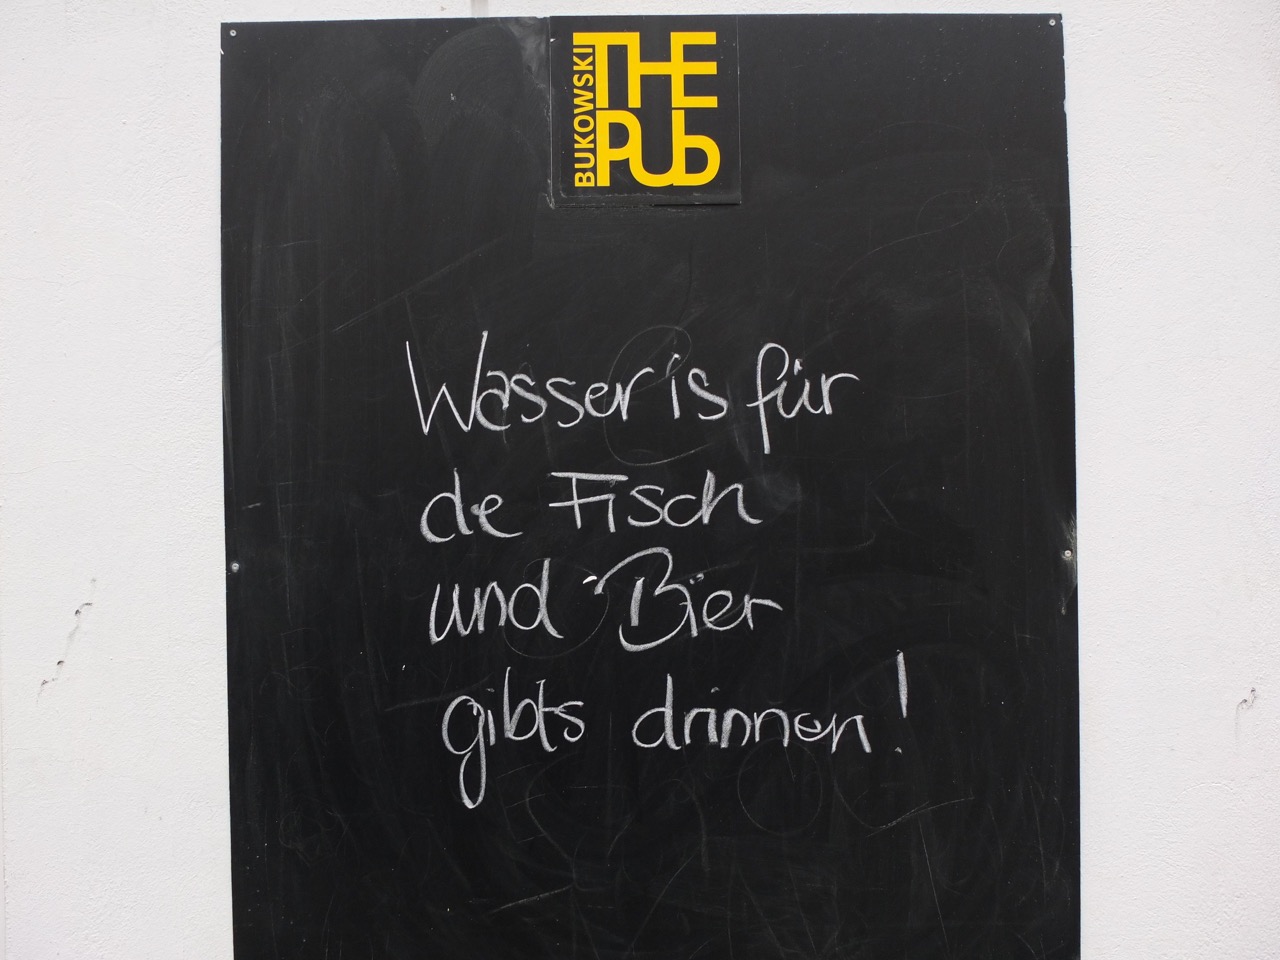 BUKOWSKI
THE
PUb
Wasser is für
de Fisch
und Bier
gibts drinnen!